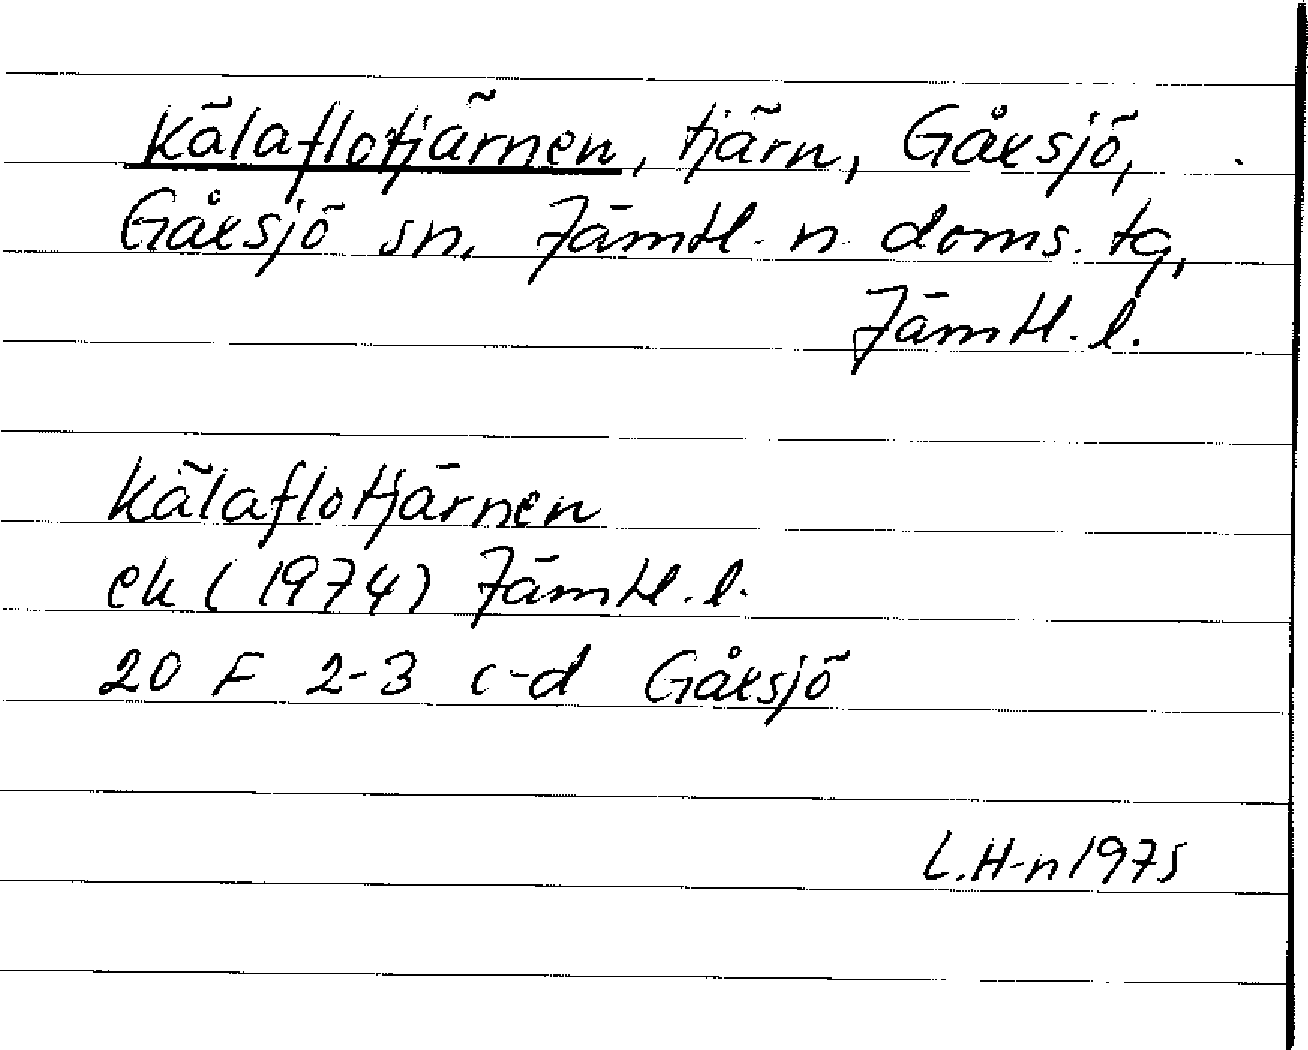 Kälaflotjärnen, tjärn, Gåxsjö,
Gåxsjö sn, Jämtl. n. doms. tg,
Jämtl. l.
Kälaflotjärnen
ek (1974) Jämtl. l.
20 F 2-3 c-d Gåxsjö
L.H-n 1975